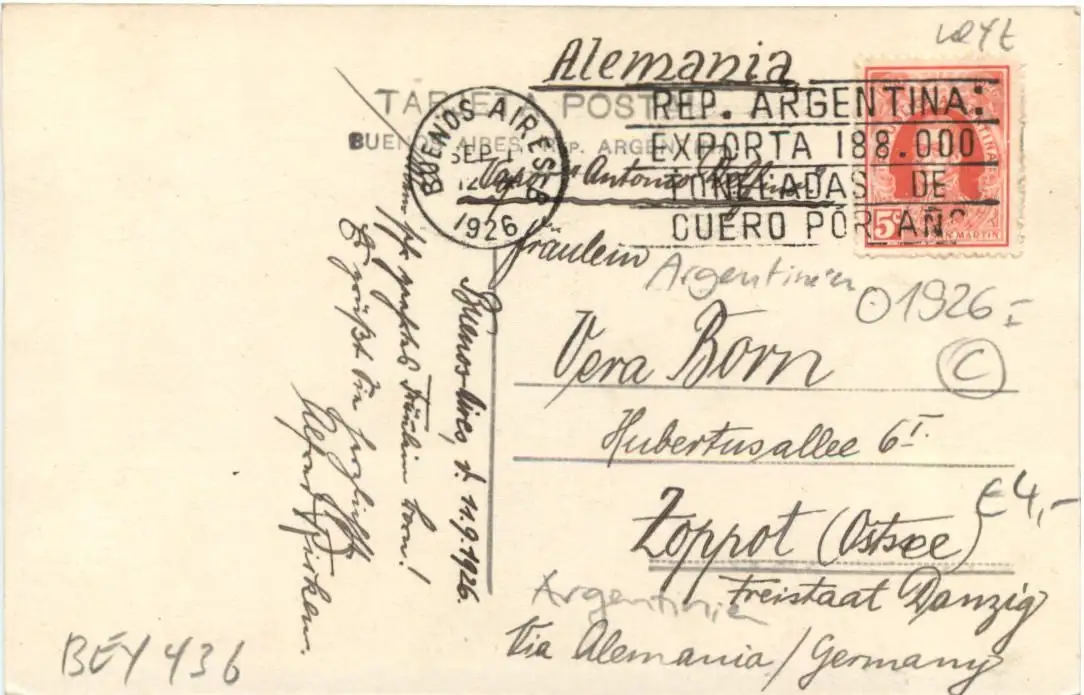 Alemania
TARJETA POSTAL
BUENOS AIRES, REP. ARGENTINA
BUENOS AIRES
SEP. 1
12
1926
REP. ARGENTINA:
EXPORTA 188.000
TONELADAS DE
CUERO POR AÑO
5c
SAN MARTIN
Vapor "Antonio Delfino"
Fräulein
Argentinien
01926
I
C
Vera Born
Hubertusallee 6 I.
Zoppot (Ostsee)
€4,-
Freistaat Danzig
Argentinien
Via Alemania / Germany
Buenos-Aires, d. 11.9.1926.
Fräulein Born!
Es grüßt Sie herzlichst
BEY 436